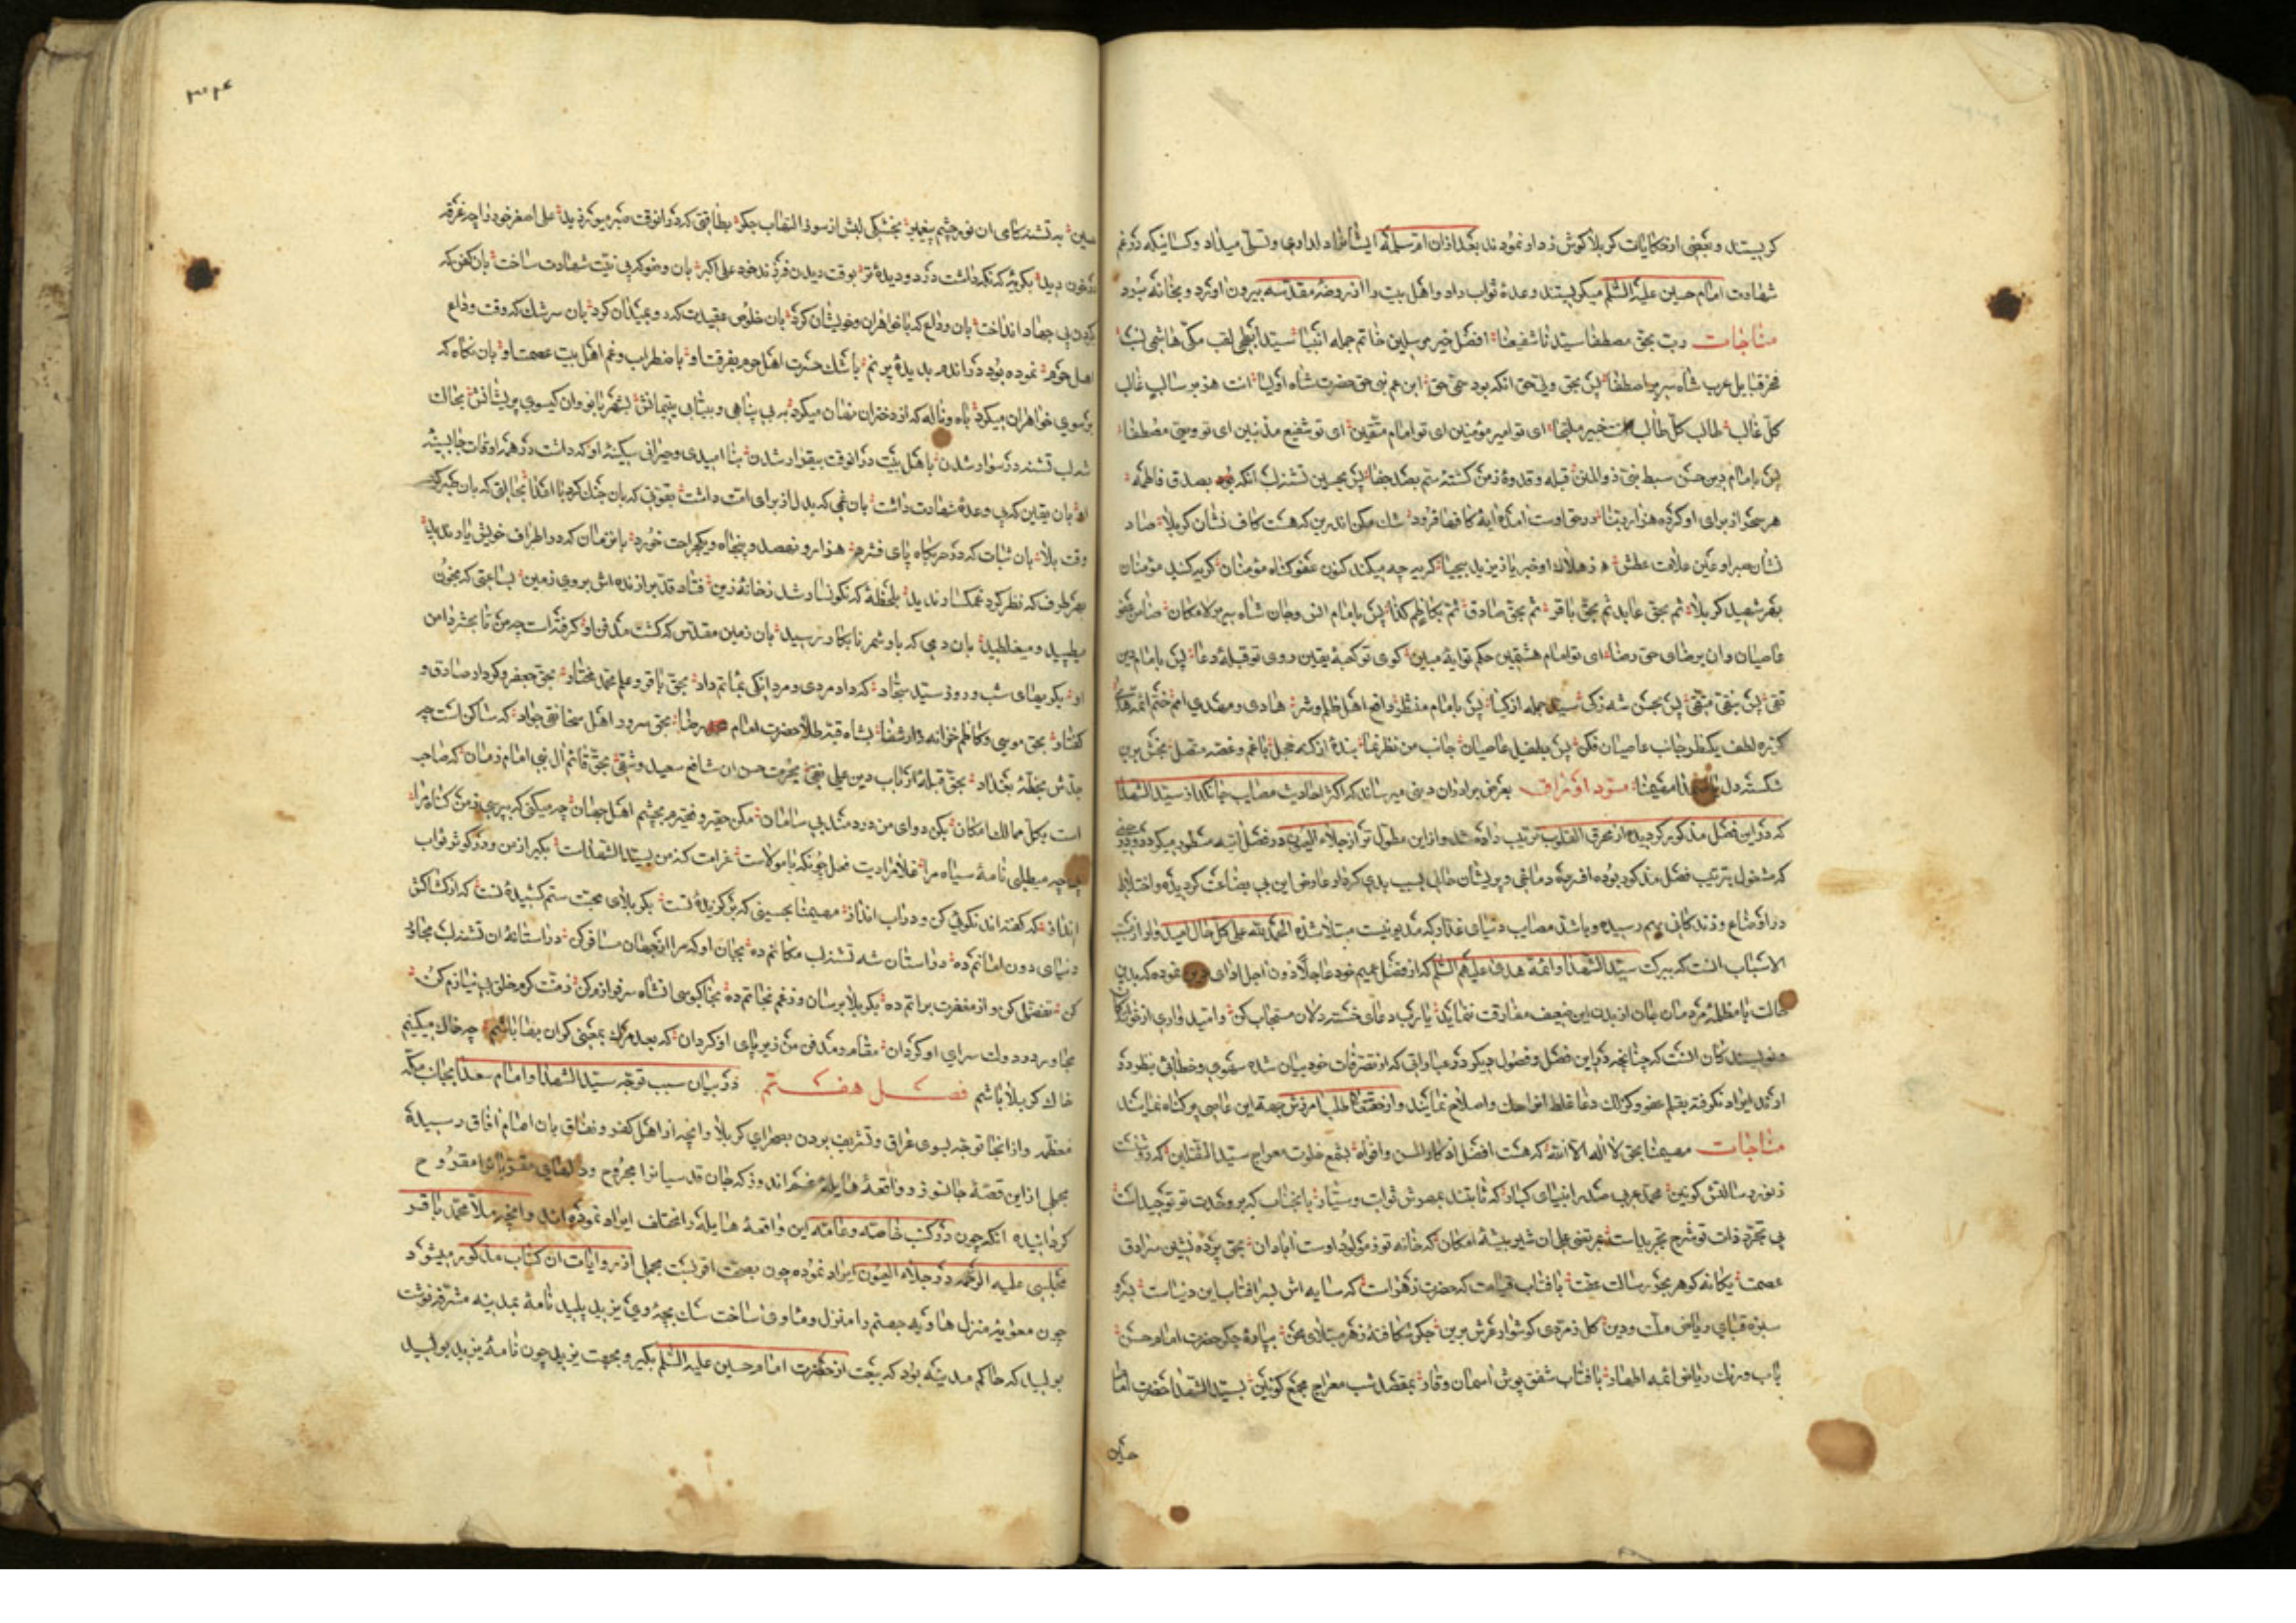 کریستند و بعضی از حکایات کربلا گوش زد او نمودند بعد ازان ام سلمه ایشانرا دلداری و تسلی میداد و کسانیکه در غم
شهادت امام حسین علیه السلم میگریستند وعدهٔ ثواب داد و اهل بیت را از روضهٔ مقدسه بیرون اورد و بخانه بُود
مناجات رب بحق مصطفا سیّد ناشفیعنا افضل خیر مرسلین خاتم جمله انبیا سید ابطحی لقب مکی هاشمی نسب
فخر قبایل عرب شاه سریر اصطفا پس بحق ولی حق انکه بود حق ابن عم نبی حق حضرت شاه اولیا انت هزبر سالب غالب
کل غالب طالب کل طالب خیر ای تو امیر مؤمنین ای تو امام متقین ای تو شفیع مذنبین ای تو وصی مصطفا
پس بامام دین حسن سبط نبی ذوالمنن قبله و قدوهٔ زمن کشتهٔ ستم بصد جفا پس بحسین تشنه لب انکه بصدق فاطمه
هر سحر از برای او کرده هزار ربنا در حق اوست امده ایهٔ کاف ها فرود شک مکن اندرین که هست کاف نشان کربلا صاد
نشان صبر او عین علامت عطش ه ز هلاک او خبر یا ز یزید بیحیا کریه چه میکند کنون عفو کناه مؤمنان کریه کنید مؤمنان
بهر شهید کربلا ثم بحق عابد ثم بحق باقر ثم بحق صادق ثم بکاظم کذا پس بامام انس و جان شاه سریر لامکان ضامن
عاصیان و ان برضای حق رضا ای تو امام هشتمین حکم تو ایهٔ مبین کوی تو کعبهٔ یقین روی تو قبلهٔ دعا پس بامام دین
تقی پس بنقی متقی پس بحسن شه زکی سید جمله ازکیا پس بامام منتظر دافع اهل ظلم و شر هادی و مهدی امم ختم ائمه هدی
کزره لطف یکنظر جانب عاصیان فکن پس بطفیل عاصیان جانب من نظر نما بندهٔ از کنه خجل با غم و غصه متصل بخش برین
شکسته دل مقیمنا مسود اوراق بعرض برادران دینی میرساند که اکثر احادیث مصایب جانکداز سید الشهدا
که در این فصل مذکور کردیده از محرق القلوب ترتیب داده شد و از این مطول تر از جلاء العیون در فصل اتیه مسطور میکردد
که مشغول بترتیب فصل مذکور بوده دماغی و پریشان حالی بسبب بدی کرفار عارض این بی بضاعت کردیده و اختلال
در اوضاع و زندکانی بهم رسیده و باشد مصایب دنیای غدار که مدیونیست مبتلا شده الحمد لله علی کل حال امید
الاسباب انست که ببرکت سید الشهدا و ائمهٔ هدی علیهم السلم که از فضل عمیم خود عاجلا دون اجل ادای دین نموده که بدین
حالت با مظلمهٔ مردمان جان از بدن این ضعیف مفارقت ننماید یا رب دعای خسته دلان مستجاب کن و امید واری از خوانندکان
و نویسندکان انست که چنانچه در این فصل و فصول دیکر در عباراتی که از تصرفات خود بیان شده سهوی و خطائی بنظر در
اید ایراد نکرفته بقلم عفو و کزلک دعا غلط انرا حک و اصلاح نمایند و از حقتعالی طلب امرزش جهة این عاصی پر کناه نمایند
مناجات مقیمنا بحق لا اله الا الله که هست افضل اذکار السن و افواه بشمع خلوت معراج سید الثقلین که در شب
ز نور رسالتش کونین محمد عربی صدر انبیای کبار که ثابتند بمهرش ثوابت و سیار بانجناب که بر وحدت تو توحید است
بی تجرد ذات تو شرح تجرید است بمرتضی علی ان شیر بیشهٔ امکان که خانهٔ تو ز مولود اوست ابادان بحق پرده نشین سرادق
عصمت یکانه کوهر بحر رسالت عفت بافتاب قیامت که حضرت زهراست که سایه اش بسر افتاب این دنیاست
سبزه قبای ریاض ملت و دین کل زمردی کوشوار عرش برین جکر شکافتهٔ زهر مبتلای محن بپارهٔ جکر حضرت امام حسن
باب و رنک ریاض ائمه اطهار بافتاب شفق پوش اسمان وقار بمقصد شب معراج مجمع کونین بسید الشهدا حضرت امام
حسین
۳۰۴
حسین به تشنه کامی ان نور چشم پیغمبر بخشکی لبش از سوز التهاب جکر بطاقتی که در انوقت صبر میورزید علی اصغر خود را چه غرقه
در خون دید بکریهٔ که نکه داشت در دو دیدهٔ تر بوقت دیدن فرزند خود علی اکبر بان وضو که پی نیت شهادت ساخت بان کفن که
کردن پی جهاد انداخت بان وداع که با خواهران و خویشان کرد بان خلوص عقیدت که در و عیدان کرد بان سرشک که وقت وداع
اهل حرم نموده بود در اندم بدیدهٔ پر نم باشک حسرت اهل حرم بفرقت او باضطراب و غم اهل بیت عصمت او بان نکاه که
بر سوی خواهران میکرد باه و ناله که از دختران نهان میکرد به بی پناهی و بیتابی یتیمانش بشهربانو و ان کیسوی پریشانش بحالت
شه لب تشنه در سوار شدن باهل بیت در انوقت بیقرار شدن بنا امیدی و حیرانی سکینهٔ او که داشت در همه اوقات جا بسینهٔ
او بان یقین که پی وعدهٔ شهادت داشت بان غمی که بدل از برای امت داشت بقوتی که بان جنک کرد با اعدا بحالتی که بان صبر کرد
وقت بلا بان ثبات که در حربکاه پای فشرد هزار و نهصد و پنجاه و یک جراحت خورد بانزمان که در اطراف خویش یار ندید
بهر طرف که نظر کرد غمکسار ندید بلحظهٔ که نکونسار شد ز خانهٔ زین فتاد قد برازنده اش بروی زمین بساعتی که بخون
میطپید و میغلطید بان دمی که باو شمر نابکار رسید بان زمین مقدس که کشت مدفن او کرفته است چه من تا بحشر دامن
او بکریهای شب و روز سید سجاد که داد مردی و مردانکی بماتم داد بحق باقر و علم محمد مختار بحق جعفر و کردار صادق و
کفتار بحق موسی و کاظم خزانه دار شفا بشاه قبه طلا حضرت امام رضا بحق سرور اهل سخا تقی جواد که ساکن است چه
جدش بخطهٔ بغداد بحق قبلهٔ ارباب دین علی نقی بحرمت حسن ان شافع سعید و شقی بحق قائم ال نبی امام زمان که صاحب
است بکل ممالک امکان بکن دوای من دردمند بی سامان مکن حقیر و فقیرم بچشم اهل جهان چه میکنی که بپرسی ز من کناه مرا
چه میطلبی نامهٔ سیاه مرا غلامزادیت فعل چونکه با مولاست غرامت کنه من بسید الشهداست بکیر از من و در کوثر ثواب
انداز که کفته اند نکوئی کن و در اب انداز مقیمنا بحسینی که برکزیدهٔ تست بکربلای محبت ستم کشیدهٔ تست که از کشاکش
دنیای دون امانم ده در استان شه تشنه لب مکانم ده بجان او که مرا از جهان مسافر کن در استانهٔ ان تشنه لب مجاور
کن تفضل کن و از مغفرت براتم ده بکربلا برسان و ز غم نجاتم ده بخاکبوسی انشاه سرفرازم کن ز منت کرم خلق بی نیازم کن
مجاور در دولت سرای او کردان مقام و مدفن من زیر پای او کردان که بعد مرک بمعنی کران بها باشم چه خاک میکنیم
خاک کربلا باشم فصل هفتم در بیان سبب توجه سید الشهدا و امام سعدا بجانب مکه
معظمه و از انجا توجه بسوی عراق و تشریف بردن بصحرای کربلا و انچه از اهل کفر و نفاق بان امام افاق رسیده
مجملی از این قصهٔ جانسوز و واقعهٔ هایلهٔ غم اندوز که جان قدسیانرا مجروح و دلهای مقربانرا مقروح
کردانیده انکه چون در کتب خاصه و عامه این واقعهٔ هایله را مختلف ایراد نموده اند و انچه ملا محمد باقر
مجلسی علیه الرحمه در جلاء العیون ایراد نموده چون بصحت اقربست مجملی از روایات ان کتاب مذکور میشود
چون معویه منزل هاویه جهنم را منزل و ماوی ساخت سک بچهٔ وی یزید پلید نامهٔ بمدینه مشرفه نوشت
بولید که حاکم مدینه بود که بیعت از حضرت امام حسین علیه السلم بکیر و بجهت یزید چون نامهٔ یزید بولید